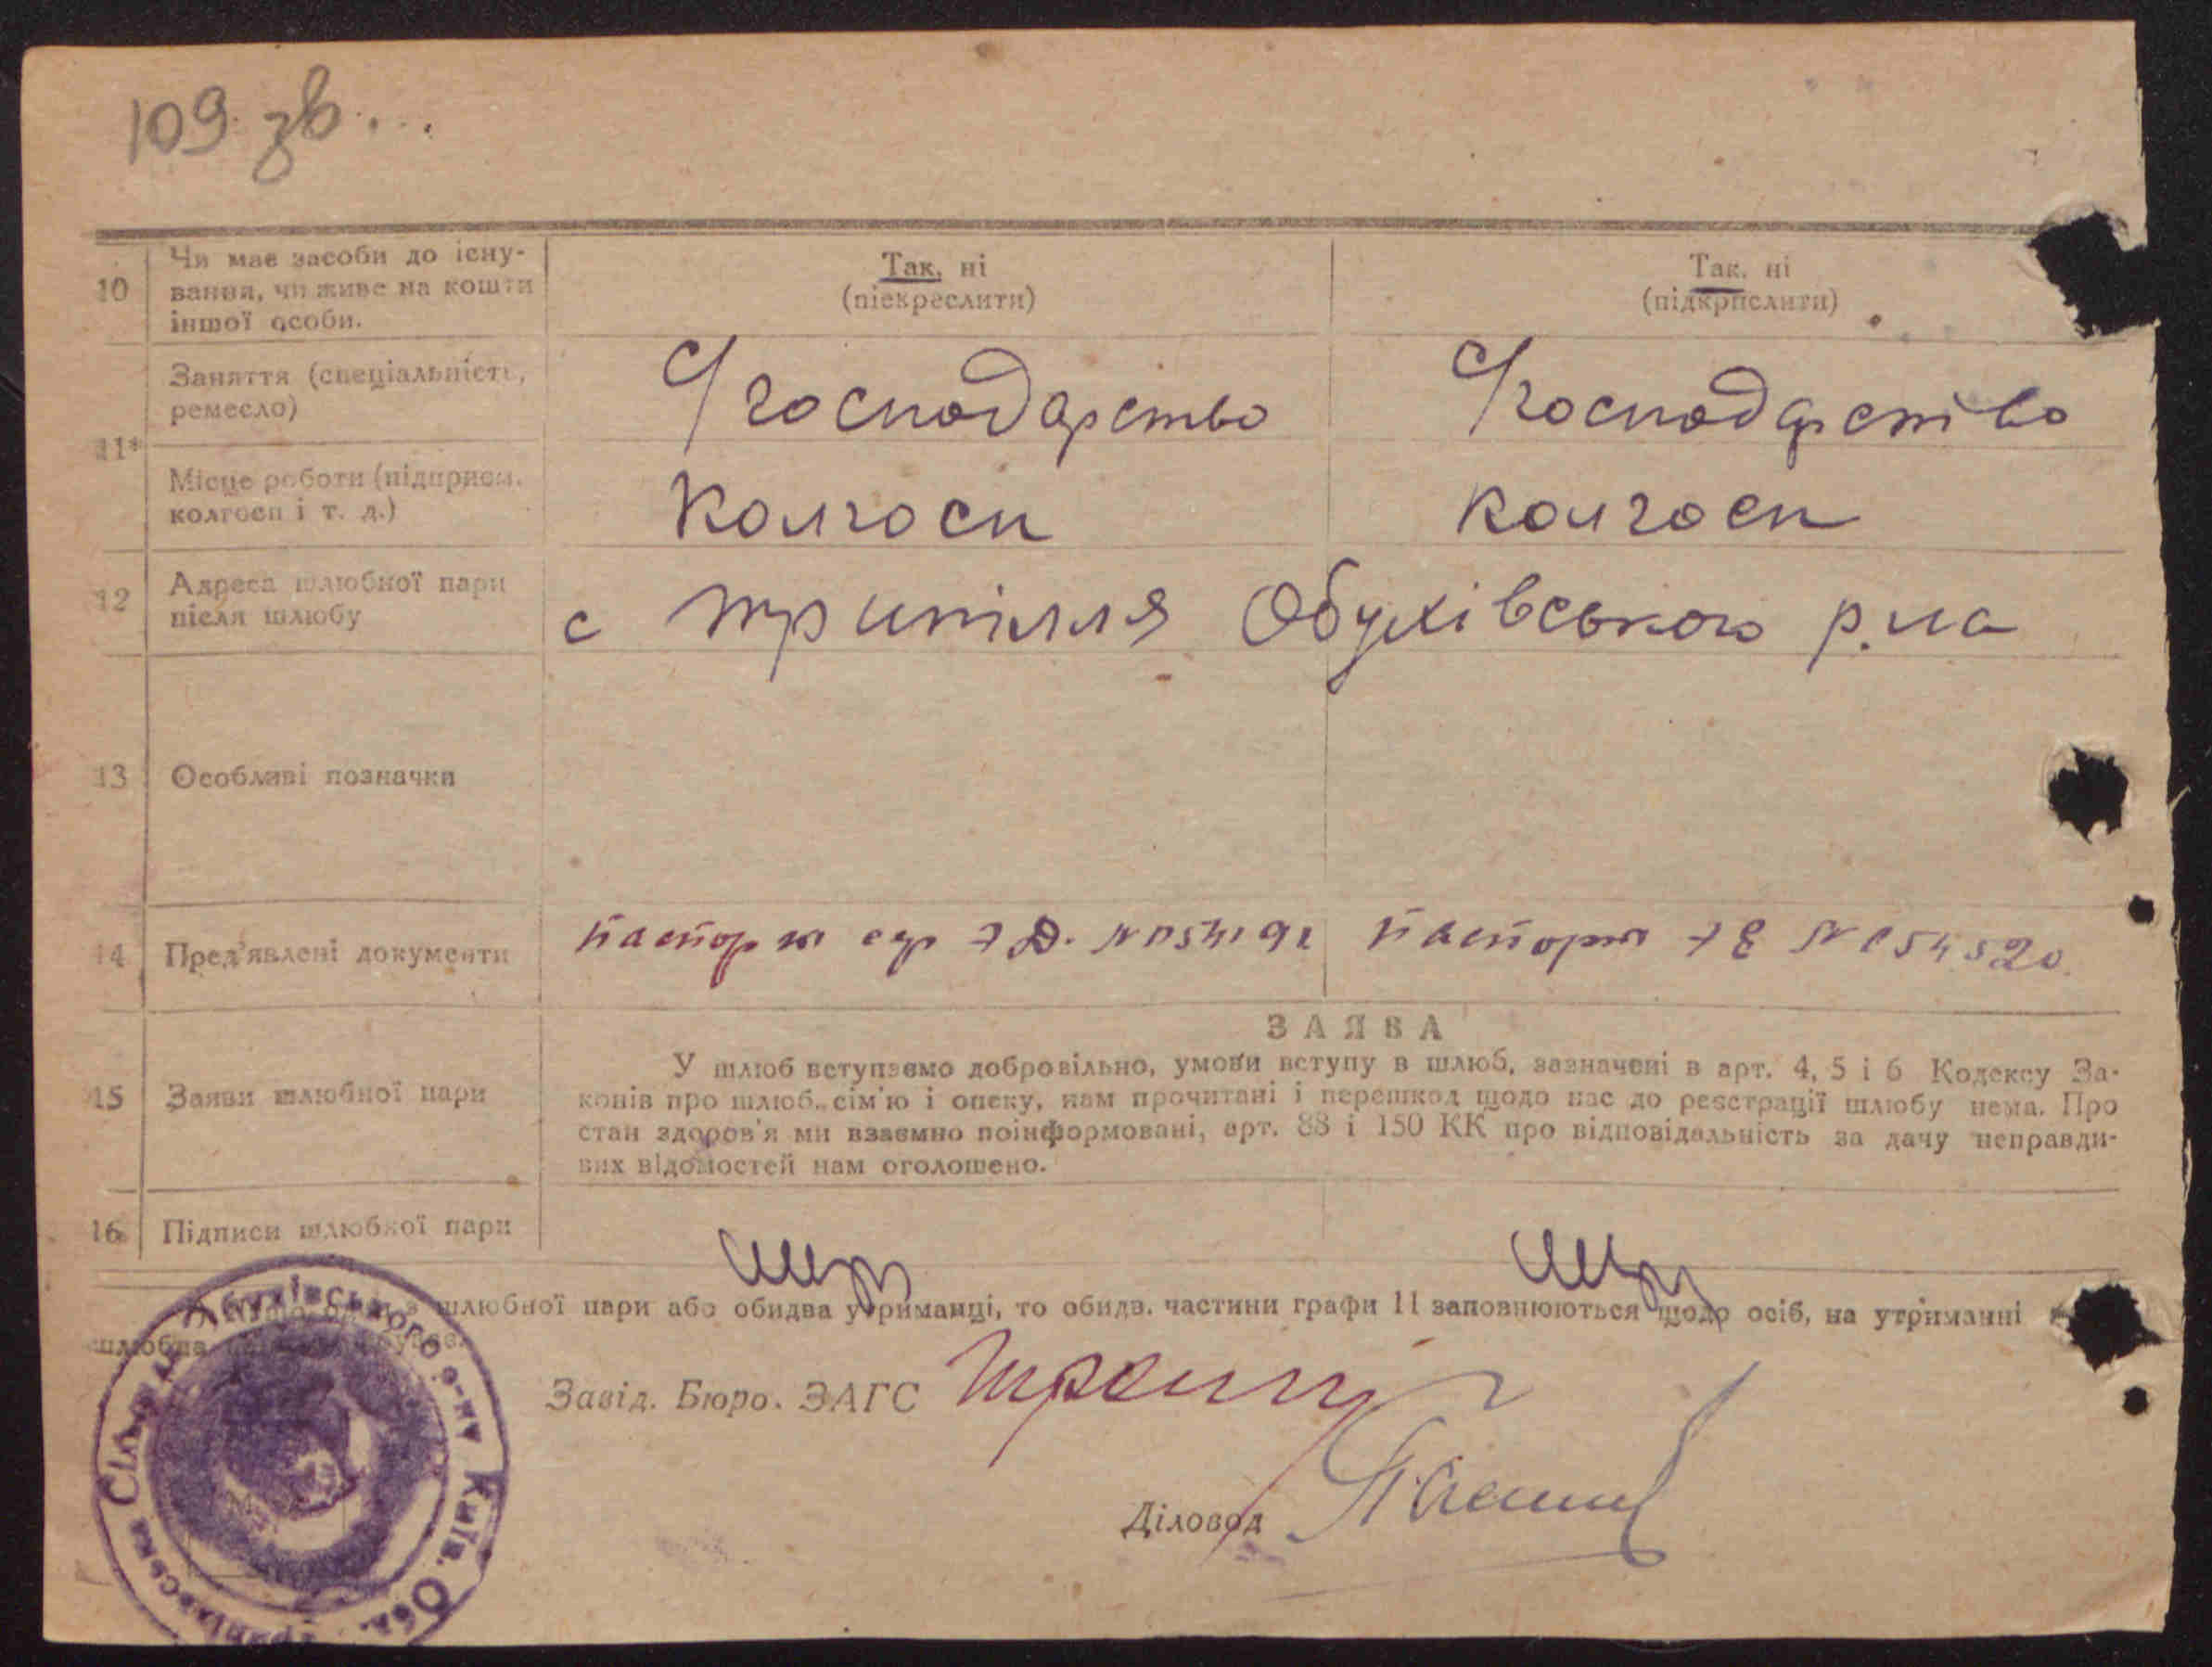 109 зв...
10 Чи має засоби до існу-
вання, чи живе на кошти
іншої особи.
Так, ні
(піекреслити)
Так, ні
(підкрпслити)
11*
Заняття (спеціальність,
ремесло)
С/господарство
С/господарство
Місце роботи (підприєм.
колгосп і т. д.)
Колгосп
колгосп
12 Адреса шлюбної пари
після шлюбу
с Трипілля Обухівського р.на
13 Особливі позначки
14 Пред'явлені документи
паспорт
паспорт
ЗАЯВА
15 Заяви шлюбної пари
У шлюб вступаємо добровільно, умови вступу в шлюб, зазначені в арт. 4, 5 і 6 Кодексу За-
конів про шлюб, сім'ю і опеку, нам прочитані і перешкод щодо нас до реєстрації шлюбу нема. Про
стан здоров'я ми взаємно поінформовані, арт. 88 і 150 КК про відповідальність за дачу неправди-
вих відомостей нам оголошено.
16 Підписи шлюбної пари
шлюбної пари або обидва утриманці, то обидв. частини графи 11 заповнюються щодо осіб, на утриманні
шлюбна
Завід. Бюро. ЗАГС
Діловод
Обухівського р-ну Київ. Обл.